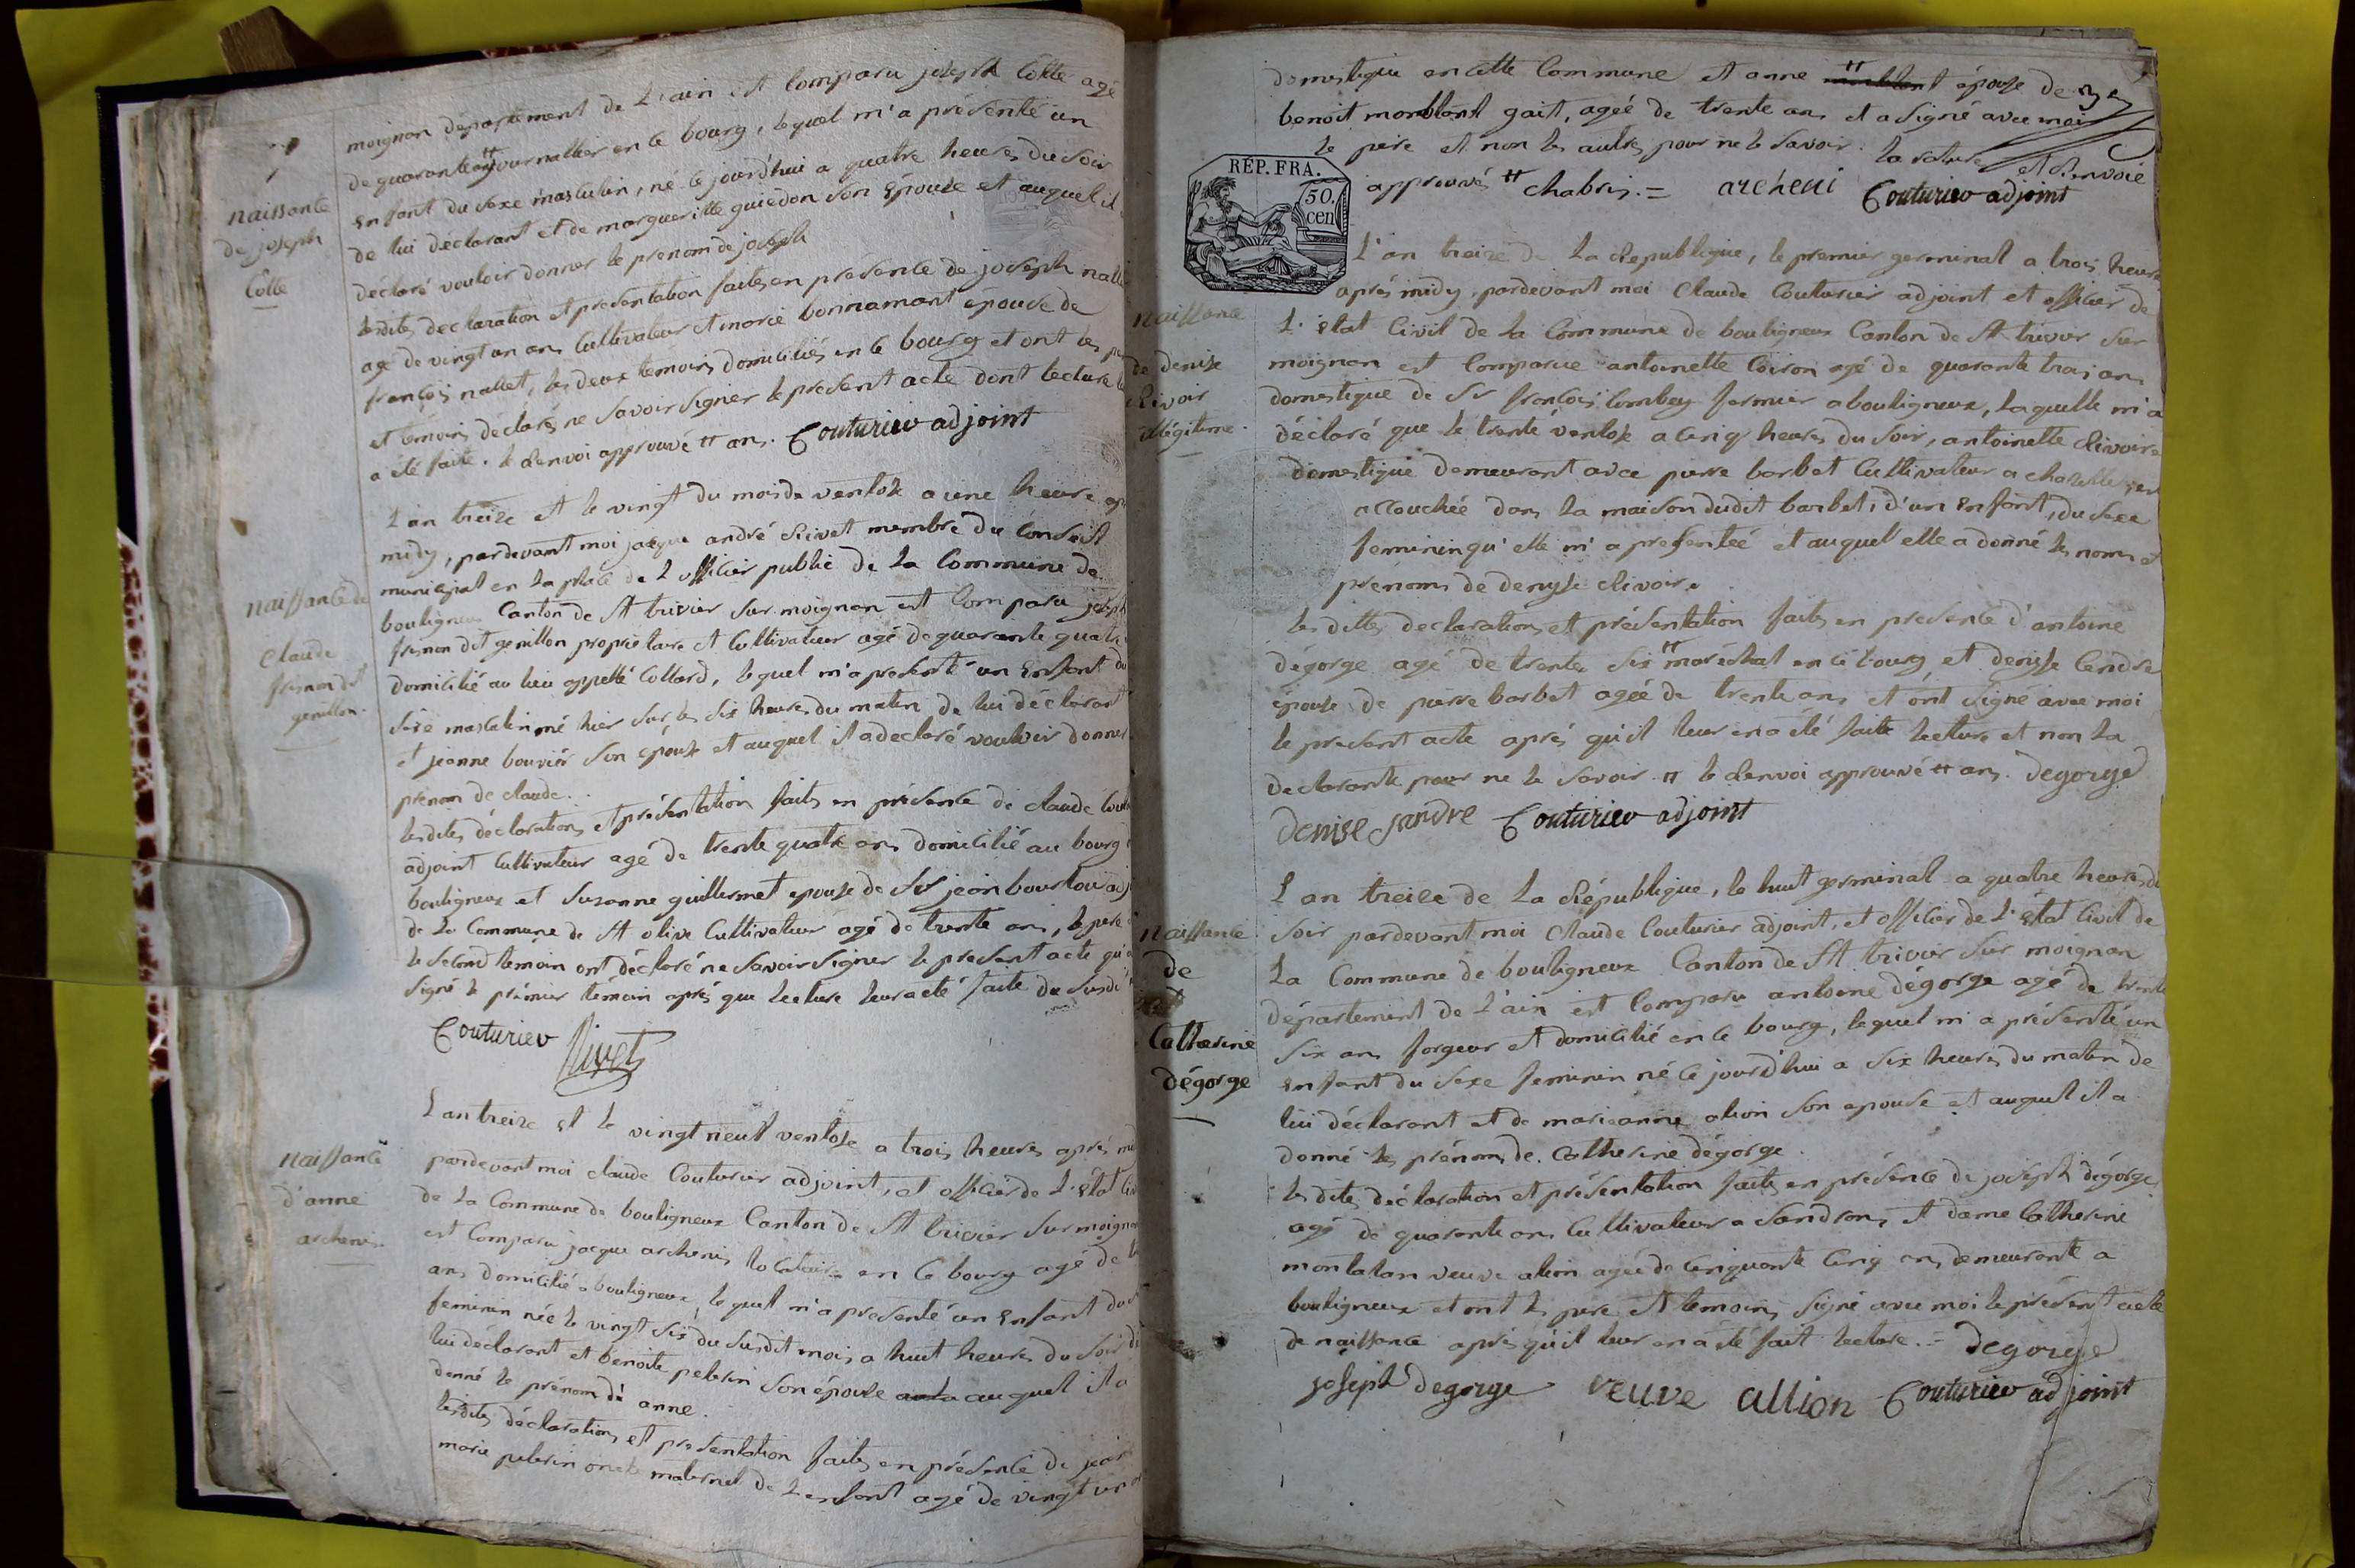 naissance
de joseph
Cotte
moignan departement de l'ain est Comparu joseph Cotte agé
de quarante tt journallier en ce bourg, lequel m'a présenté un
Enfant du sexe masculin, né ce jourd'hui a quatre heures du soir
de lui déclarant et de margueritte guiedon son Epouse et auquel il
déclaré vouloir donner le prenom de joseph
lesdites declaration et presentation faites en présence de joseph
agé de vingt un ans Cultivateur et marie bonnamant épouse de
françois nallet, les deux temoins domiciliés en ce bourg et ont les
et témoins déclarés ne savoir signer le présent acte dont lecture
a été faite. le Renvoi approuvé tt ans. Couturier adjoint
naissance de
Claude
frenon dit
genillon.
L'an treize et le vingt du mois de ventose a une heure
midy, pardevant moi jacque andré Rivet membre du Conseil
municipal en la place de l'officier public de la Commune de
bouligneux Canton de St trivier sur moignan est Comparu
frenon dit genillon propriétaire et Cultivateur agé de quarante quatre
domicilié au lieu appellé Collard, lequel m'a presenté un Enfant du
sexe masculin né hier sur les six heures du matin de lui déclarant
et jeanne bouvier son épouse et auquel il a declaré vouloir donner
prénom de claude.
lesdites déclarations et présentation faites en présence de claude
adjoint Cultivateur agé de trente quatre ans domicilié au bourg
bouligneux et Suzanne guillermet epouse de Sr jean
de la Commune de St olive Cultivateur agé de trente ans, le pere
le second temoin ont déclaré ne savoir signer le present acte
signé le prémier témoin après que lecture leur a été faite du susdit
Couturier Rivet
naissance
d'anne
archeni.
L'an treize et le vingt neuf ventose a trois heures après
pardevant moi claude Couturier adjoint, et officier de l'état
de la Commune de bouligneux Canton de St trivier sur moignan
est Comparu jacque archeni locataire en ce bourg agé de
ans domicilié a bouligneux, lequel m'a presenté un Enfant du
feminin née le vingt six du susdit mois a huit heures du soir de
lui déclarant et benoite pelerin son épouse auquel il a
donné le prénom d'anne.
lesdites déclarations et presentation faites en présence de jean
marie pelerin oncle maternel de l'enfant agé de vingt
domestique en cette Commune et anne tt épouse de
benoit montlant gait, ageé de trente ans et a signé avec moi
le père et non les autres pour ne le savoir. la rature et Renvoie
approuvés tt chabris. = archeni Couturier adjoint
RÉP. FRA.
50.
cen
naissance
de denise
Rivoir
illégitime.
L'an treize de la République, le premier germinal a trois heures
après midy, pardevant moi Claude Couturier adjoint et officier de
l'état Civil de la Commune de bouligneux Canton de St trivier sur
moignan est Comparue antoinette Coiron agé de quarante trois ans
domestique de Sr françois Combey fermier a bouligneux, laquelle m'a
déclaré que le trente ventose a cinq heures du soir, antoinette Rivoire
domestique demeurant avec pierre barbet Cultivateur a
accouchée dans la maison dudit barbet, d'un Enfant, du sexe
feminin qu'elle m'a presenteé et auquel elle a donné les noms et
prénoms de denyse Rivoire.
les dittes declarations et présentation faites en presence d'antoine
dégorge agé de trente six tt maréchal en ce bourg et denise Cendre
épouse de pierre barbet ageé de trente ans et ont signé avec moi
le present acte après qu'il leur en a été faitte lecture et non la
declarante pour ne le savoir. tt le Renvoi approuvé tt ans. degorge
denise sandre Couturier adjoint
naissance
de
Catherine
dégorge
L'an treize de la République, le huit germinal a quatre heures du
soir pardevant moi Claude Couturier adjoint, et officier de l'état Civil de
la Commune de bouligneux Canton de St trivier sur moignan
département de l'ain est Comparu antoine dégorge agé de trente
six ans forgeur et domicilié en ce bourg, lequel m'a présenté un
enfant du sexe feminin né ce jourd'hui a six heures du matin de
lui déclarant et de marieanne alion son epouse et auquel il a
donné les prénoms de Catherine dégorge.
lesdites déclaration et présentation faites en présence de joseph dégorge
agé de quarante ans Cultivateur a Sandrans et dame Catherine
montalan veuve alion ageé de Cinquante Cinq ans demeurante a
bouligneux et ont les pere et temoins signé avec moi le présent acte
de naissance après qu'il leur en a été fait lecture. = degorge
joseph degorge veuve allion Couturier adjoint